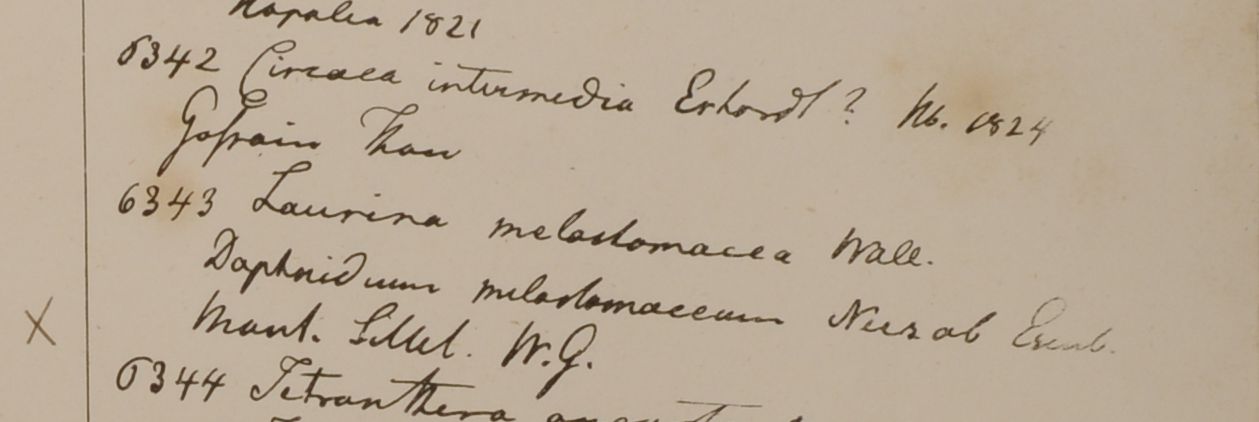 Napalia 1821
6342 Circaea intermedia Erhardt? Hb. 1824
Gossain Than
6343 Laurina melastomacea Wall.
Daphnidium melastomaceum Nees ab Esenb.
Mont. Sillet. W.G.
X
6344 Tetranthera